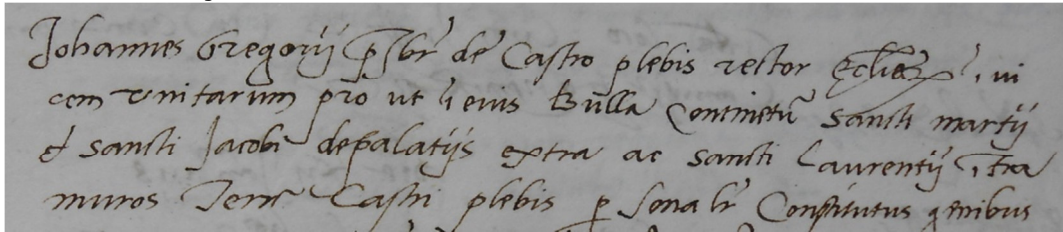 Johannes Gregorÿ p̄sbr de Castro plebis rector Eccliaꝝ ī vi
cem vnitarum pro ut ī eius Bulla Continetū Sancti martÿ
et sancti Jacobi depalatÿs extra ac Sancti Laurentÿ ītra
muros Terre Castri plebis ꝑsonalr Constitutus genibus